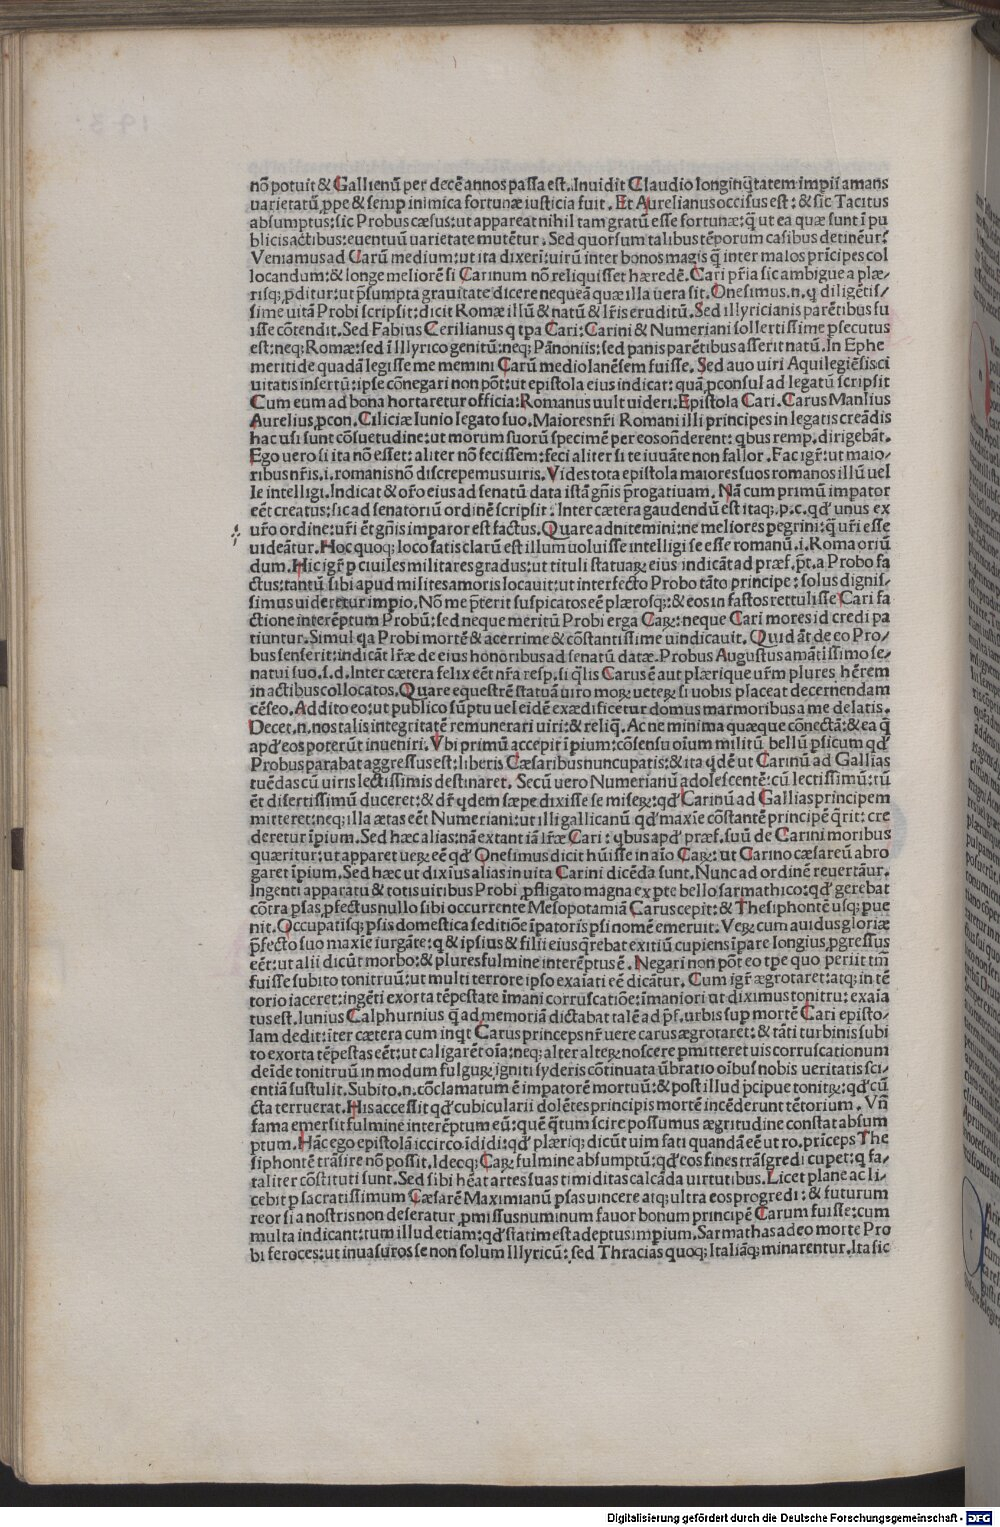 nō potuit & Gallienū per decē annos passa est. Inuidit Claudio longinq̄tatem impii amans
uarietatū ꝓpe & semp inimica fortunæ iusticia fuit. Et Aurelianus occisus est: & sic Tacitus
absumptus: sic Probus cæsus: ut appareat nihil tam gratū esse fortunæ: q̄ ut ea quæ sunt ī pu
blicis actibus: euentuū uarietate mutētur. Sed quorsum talibus tēporum casibus detinēur?
Veniamus ad Carū medium: ut ita dixeri: uirū inter bonos magis q̄ inter malos prīcipes col
locandum: & longe meliorē si Carinum nō reliquisset hæredē. Cari pr̄ia sic ambigue a plæ⸗
risq; ꝓditur: ut p̄sumpta grauitate dicere nequeā quæ illa uera sit. Onesimus.n.q diligētis⸗
sime uitā Probi scripsit: dicit Romæ illū & natū & lr̄is eruditū. Sed illyricianis parētibus fu
isse cōtendit. Sed Fabius Cerilianus q tpa Cari: Carini & Numeriani sollertissime ꝑsecutus
est: neq; Romæ: sed ī Illyrico genitū: neq; Pānoniis: sed panis parētibus asserit natū. In Ephe
meritide quadā legisse me memini Carū mediolanēsem fuisse. Sed auo uiri Aquilegiēsis ci
uitatis insertū: ipse cōnegari non pōt: ut epistola eius indicat: quā ꝓconsul ad legatū scripsit
Cum eum ad bona hortaretur officia: Romanus uult uideri: Epistola Cari. Carus Manlius
Aurelius ꝓcon. Ciliciæ Iunio legato suo. Maiores nr̄i Romani illi principes in legatis creādis
hac usi sunt cōsuetudine: ut morum suorū specimē per eos on̄derent: qbus remp. dirigebāt.
Ego uero si ita nō esset: aliter nō fecissem: feci aliter si te iuuāte non fallor. Fac igr̄: ut maio⸗
ribus nr̄is.i.romanis nō discrepemus uiris. Vides tota epistola maiores suos romanos illū uel
le intelligi. Indicat & or̄o eius ad senatū data istā gn̄is p̄rogatiuam. Nā cum primū impator
eēt creatus: sic ad senatoriū ordinē scripsit. Inter cætera gaudendū est itaq;.p.c.qd' unus ex
ur̄o ordine: ur̄i ēt gn̄is imparor est factus. Quare adnitemini: ne meliores pegrini: q̄ ur̄i esse
uideātur. Hoc quoq; loco satis clarū est illum uoluisse intelligi se esse romanū.i.Roma oriū
dum. Hic igr̄ p ciuiles militares gradus: ut tituli statuaꝝ eius indicāt ad præf. p̄t. a Probo fa
ctus: tantū sibi apud milites amoris locauit: ut interfecto Probo tāto principe: solus dignis⸗
simus uideretur impio. Nō me p̄terit suspicatos eē plærosq;: & eos in fastos rettulisse Cari fa
ctione interēptum Probū: sed neque meritū Probi erga Caꝝ: neque Cari mores id credi pa
tiuntur. Simul qa Probi mortē & acerrime & cōstantissime uindicauit. Quid āt de eo Pro⸗
bus senserit: indicāt lr̄æ de eius honoribus ad senatū datæ. Probus Augustus amātissimo se⸗
natui suo.s.d. Inter cætera felix eēt nr̄a resp. si q̄lis Carus ē aut plærique ur̄m plures hērem
in actibus collocatos. Quare equestrē statuā uiro moꝝ ueteꝝ si uobis placeat decernendam
cēseo. Addito eo: ut publico sūptu uel eidē exædificetur domus marmoribus a me delatis.
Decet.n.nos talis integritatē remunerari uiri: & reliq. Ac ne minima quæque cōnectā: & ea q̄
apd' eos poterūt inueniri. Vbi primū accepit īpium: cōsensu oīum militū bellū psicum qd'
Probus parabat aggressus est: liberis Cæsaribus nuncupatis: & ita qdē ut Carinū ad Gallias
tuēdas cū uiris lectissimis destinaret. Secū uero Numerianū adolescentē: cū lectissimū: tū
ēt disertissimū duceret: & dr̄ qdem sæpe dixisse se miseꝝ: qd' Carinū ad Gallias principem
mitteret: neq; illa ætas eēt Numeriani: ut illi gallicanū qd' maxīe cōstantē principē q̄rit: cre
deretur īpium. Sed hæc alias: nā extant iā lr̄æ Cari: qbus apd' præf. suū de Carini moribus
quæritur: ut apparet ueꝝ eē qd' Onesimus dicit hūisse in aīo Caꝝ: ut Carino cæsareū abro
garet īpium. Sed hæc ut dixīus alias in uita Carini dicēda sunt. Nunc ad ordinē reuertāur.
Ingenti apparatu & totis uiribus Probi ꝓfligato magna ex pte bello sarmathico: qd' gerebat
cōtra psas ꝓfectus nullo sibi occurrente Mesopotamiā Carus cepit: & Thesiphontē usq; pue
nit. Occupatisq; psis domestica seditiōe īpatoris psi nomē emeruit. Veꝝ cum auidus gloriæ
p̄fecto suo maxīe iurgāte: q & ipsius & filii eius q̄rebat exitiū cupiens īpare longius ꝓgressus
eēt: ut alii dicūt morbo: & plures fulmine interēptus ē. Negari non pōt eo tpe quo periit tm̄
fuisse subito tonitruū: ut multi terrore ipso exaīati eē dicātur. Cum igr̄ ægrotaret: atq; in tē
torio iaceret: ingēti exorta tēpestate īmani corruscatiōe: īmaniori ut diximus tonitru: exaīa
tus est. Iunius Calphurnius q ad memoriā dictabat talē ad p̄f. urbis sup mortē Cari episto⸗
lam dedit: īter cætera cum inqt Carus princeps nr̄ uere carus ægrotaret: & tāti turbinis subi
to exorta tēpestas eēt: ut caligarēt oīa: neq; alter alteꝝ noscere pmitteret uis corruscationum
deīde tonitruū in modum fulguꝝ igniti syderis cōtinuata ūbratio oībus nobis ueritatis sci⸗
entiā sustulit. Subito.n.cōclamatum ē impatorē mortuū: & post illud p̄cipue tonitꝝ: qd' cū
cta terruerat. His accessit qd' cubicularii dolētes principis mortē incēderunt tētorium. Vn̄
fama emersit fulmine interēptum eū: quē q̄tum scire possumus ægritudine constat absum
ptum. Hāc ego epistolā iccirco īdidi: qd' plæriq; dicūt uim fati quandā eē ut ro. prīceps The
siphontē trāsire nō possit. Ideoq; Caꝝ fulmine absumptū: qd' eos fines trāsgredi cupet: q fa⸗
taliter cōstituti sunt. Sed sibi hēat artes suas timiditas calcāda uirtutibus. Licet plane ac li⸗
cebit p sacratissimum Cæsarē Maximianū psas uincere atq; ultra eos progredi: & futurum
reor si a nostris non deseratur ꝓmissus numinum fauor bonum principē Carum fuisse: cum
multa indicant: tum illud etiam: qd' statim est adeptus impium. Sarmathas adeo morte Pro
bi feroces: ut inuasuros se non solum Illyricū: sed Thracias quoq; Italiāq; minarentur. Ita sic
Digitalisierung gefördert durch die Deutsche Forschungsgemeinschaft - DFG